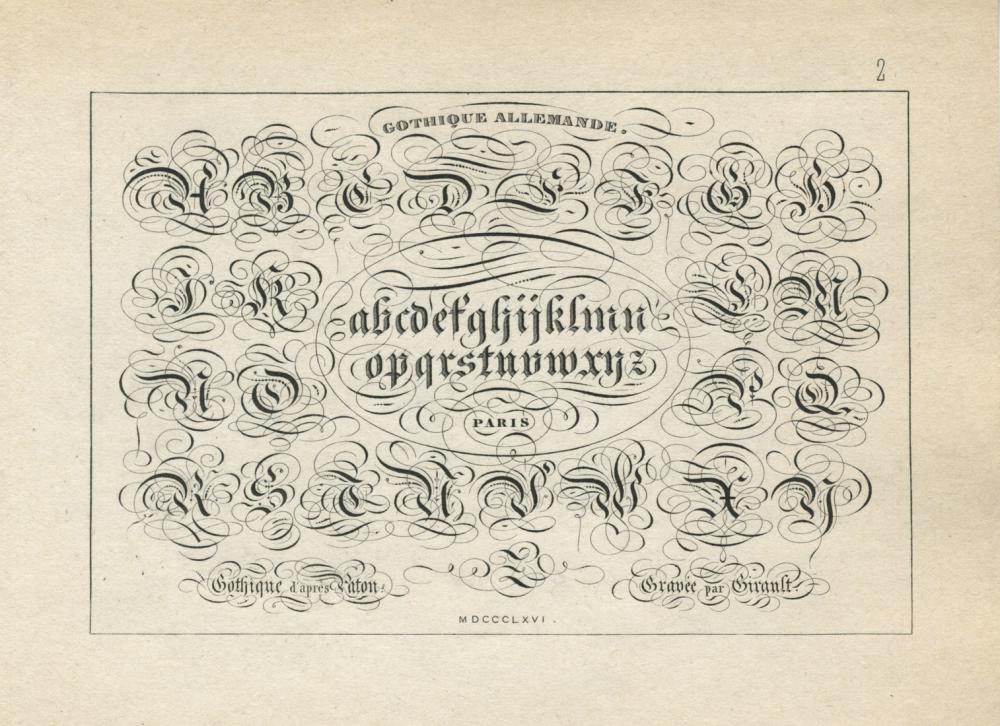 2
GOTHIQUE ALLEMANDE.
A B C D E F G H
I K L M
abcdefghijklmn
opqrstuvwxyz
N O P Q
PARIS
R S T U V W X Y
Z
Gothique d'après Paton. Gravée par Girault.
MDCCCLXVI.